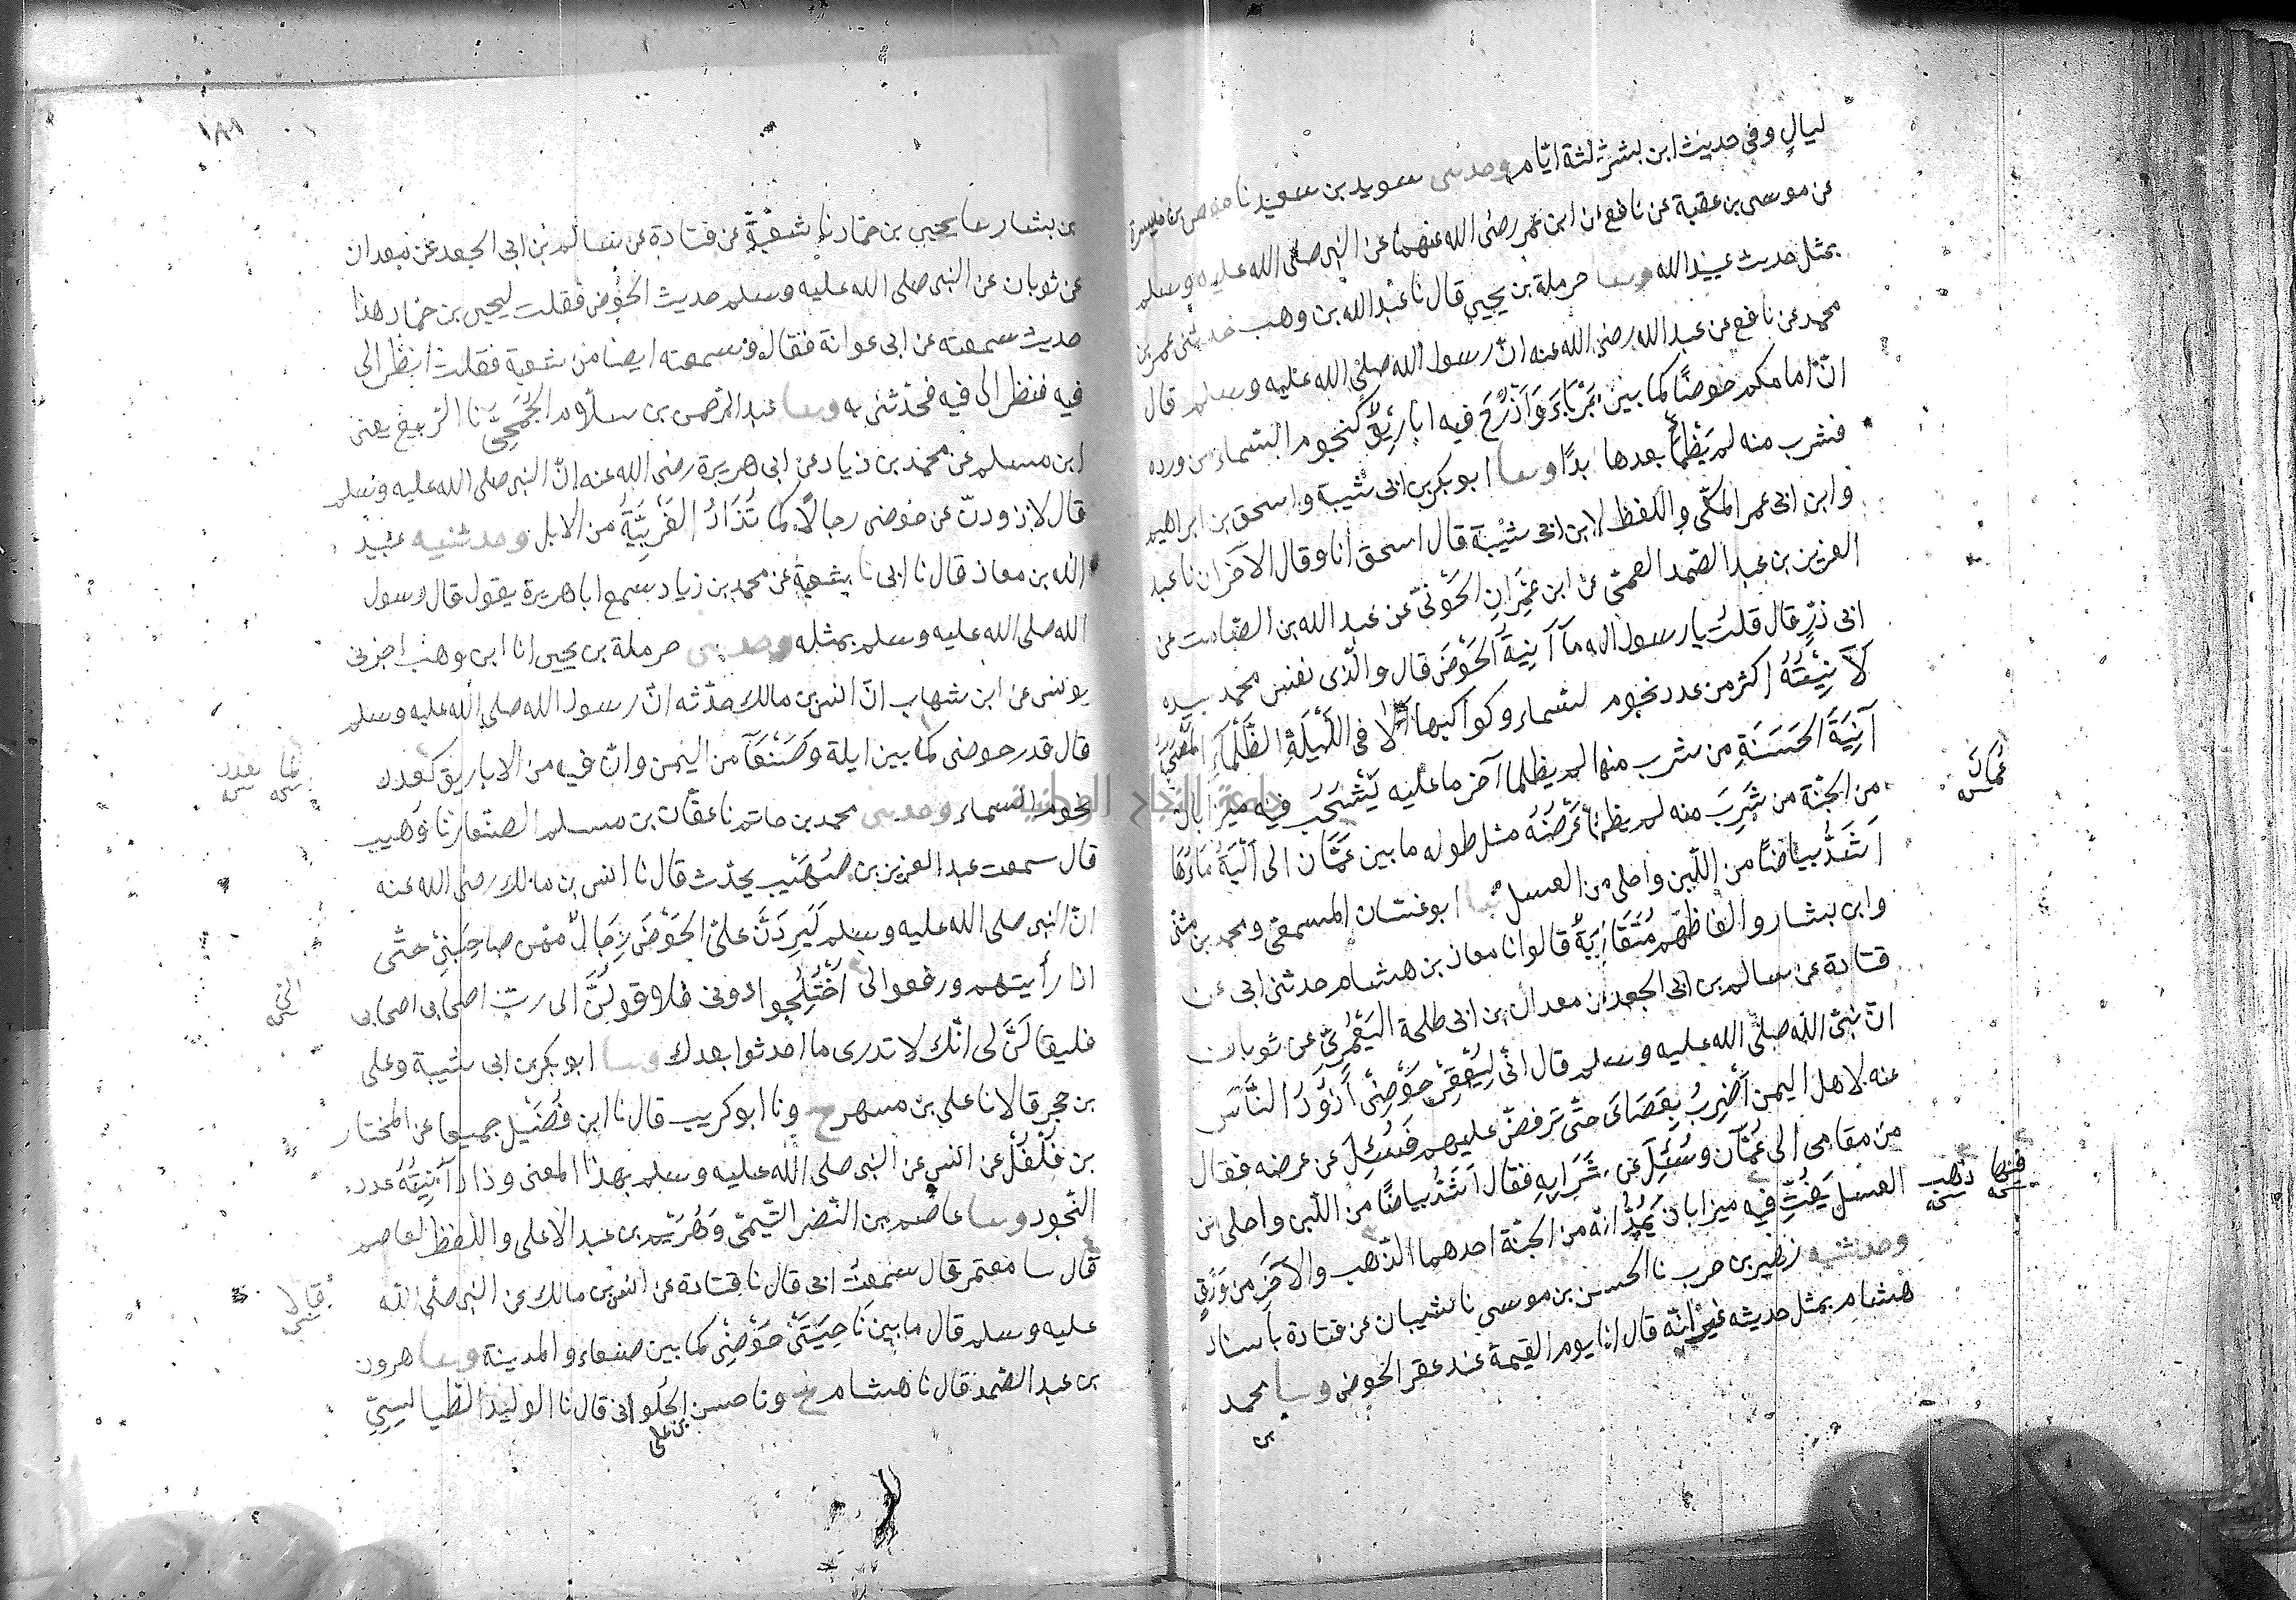 ليالٍ وفي حديث ابن بشر ثلثة ايّام وحدثنى سويد بن سعيد نا حفص بن ميسرة
عن موسى بن عقبة عن نافع عن ابن عمر رضى الله عنهما عن النبى صلى الله عليه وسلم
بمثل حديث عبيد الله وحدثنا حرملة بن يحيى قال نا عبد الله بن وهب حدثنى عمر بن
محمد عن نافع عن عبد الله رضى الله عنه انّ رسول الله صلى الله عليه وسلم قال
انّ امامكم حوضًا كما بين جَرْبَاءَ وَأَذْرُحَ فيه اباريق كنجوم السماء من ورده
فشرب منه لم يَظْمَأْ بعدها ابدًا وحدثنا ابو بكر بن ابى شيبة واسحق بن ابراهيم
وابن ابى عمر المكّى واللفظ لابن ابى شَيْبَة قال اسحق انا وقال الآخران نا عبد
العزيز بن عبد الصّمد العمّى عن ابى عِمْرَانِ الجَوْنىّ عن عبد الله بن الصّامت عن
ابى ذرٍّ قال قلت يا رسول الله مآ آنِيَةُ الحَوْضَ قال والّذى نفس محمد بيده
لَآنِيَتُهُ اكثر من عدد نجوم السماء وكواكبها الا فى اللَّيْلَةِ الظَّلْمَآءِ المُصْحِيَةِ
آنِيَةُ الجَنَّةِ من شرب منها لم يظمأ آخر ما عليه يَشْخَبُ فيه ميزابان
من الجنّة من شَرِبَ منه لم يظمأ عَرْضُهُ مثل طوله ما بين عَمَّان الى أَيْلَةَ مَاؤُهَا
اشَدُّ بياضًا من اللّبن واحلى من العسل حدثنا ابو غسّان المسمعى ومحمد بن مثنّى
وابن بشار والفاظهم مُتَقَارِبَةٌ قالوا نا معاذ بن هشام حدثنى ابى عن
قتادة عن سالم بن ابى الجعد عن معدان بن ابى طلحة اليَعْمُرِىّ عن ثوبان
انّ نبىّ الله صلى الله عليه وسلم قال انّى لَبِعُقْرِ حَوْضِى أَذُودُ النَّاسَ
عنه لاهل اليمن أَضْرِبُ بِعَصَاىَ حتّى يَرفضّ عليهم فَسُئِلَ عن عرضه فقال
من مقامى الى عُمَّان وسُئِلَ عن شَرَابِهِ فقال اشدُّ بياضًا من اللّبن واحلى من
العسل يَغُتُّ فيه ميزابان يَمُدُّانِهِ من الجنّة احدهما الذّهب والآخَر من وَرِقٍ
وحدثنيه زهير بن حرب نا الحسن بن موسى نا شيبان عن قتادة باسناد
هشام بمثل حديثه غير انّه قال انا يوم القيمة عند عقر الحوض وحدثنا محمد
بن
عُمَان نسخة
فيها نسخة ذهب نسخة
١٨١
بن بشار نا يحيى بن حمّاد نا شُعْبَةُ عن قتادة عن سالم بن ابى الجعد عن معدان
عن ثوبان عن النبى صلى الله عليه وسلم حديث الحَوْض فقلت ليحيى بن حمّاد هذا
حديث سمعته عن ابى عوانة فقال وسمعته ايضا من شعبة فقلت انظر الى
فيه فنظر الى فيه فحدّثنى به وحدثنا عبد الرّحمن بن سلّام الجُمَحِىّ نا الرّبيع يعنى
ابن مسلم عن محمد بن زياد عن ابى هريرة رضى الله عنه انّ النبى صلى الله عليه وسلم
قال لاذودنّ عن حوضى رجالًا كما تُذَادُ الغَرِيْبَةُ من الابل وحدثنيه عبيد
الله بن معاذ قال نا ابى نا شعبة عن محمد بن زياد سمع ابا هريرة يقول قال رسول
الله صلى الله عليه وسلم بمثله وحدثنى حرملة بن يحيى انا ابن وهب اخبرنى
يونس عن ابن شهاب انّ انس بن مالك حدّثه انّ رسول الله صلى الله عليه وسلم
قال قدر حوضى كما بين ايلة وَصَنْعَآءَ من اليمن وانّ فيه من الاباريق كعدد
نجوم السماء وحدثنى محمد بن حاتم نا عفّان بن مسلم الصّفار نا وُهَيب
قال سمعت عبد العزيز بن صُهَيْبٍ يحدّث قال نا انس بن مالك رضى الله عنه
انّ النبى صلى الله عليه وسلم لَيَرِدَنَّ علىّ الحَوْضَ رِجَالٌ ممّن صاحَبَنِى حتّى
اذا رأيتهم ورفعوا الىّ اخْتُلِجُوا دونى فلاقولَنَّ اى ربّ اصحابى اصحابى
فليقالَنَّ لى انّك لا تدرى ما احدثوا بعدك وحدثنا ابو بكر بن ابى شيبة وعلى
بن حجر قالا نا على بن مسهر ح ونا ابو كريب قال نا ابن فُضَيْل جميعا عن المختار
بن فُلْفُل عن انس عن النبى صلى الله عليه وسلم بهذا المعنى وزاد آنِيَتُهُ عدد
النّجوم وحدثنا عاصم بن النّضر التّيمىّ وَهُرَيْم بن عبد الاعلى واللفظ لعاصم
قال نا معتمر قال سمعت ابى قال نا قتادة عن انس بن مالك عن النبى صلى الله
عليه وسلم قال ما بين نَاحِيَتَىْ حَوْضِى كما بين صنعاء والمدينة وحدثنا هرون
بن عبد الله قال نا عبد الصّمد قال نا هشام ح ونا حسن الحُلوانى قال نا ابو الوليد الطّيالسِىّ
بن على
كما نسخة بعدد نسخة
الىّ نسخة
قالا نسخة
جامعة النجاح الوطنية